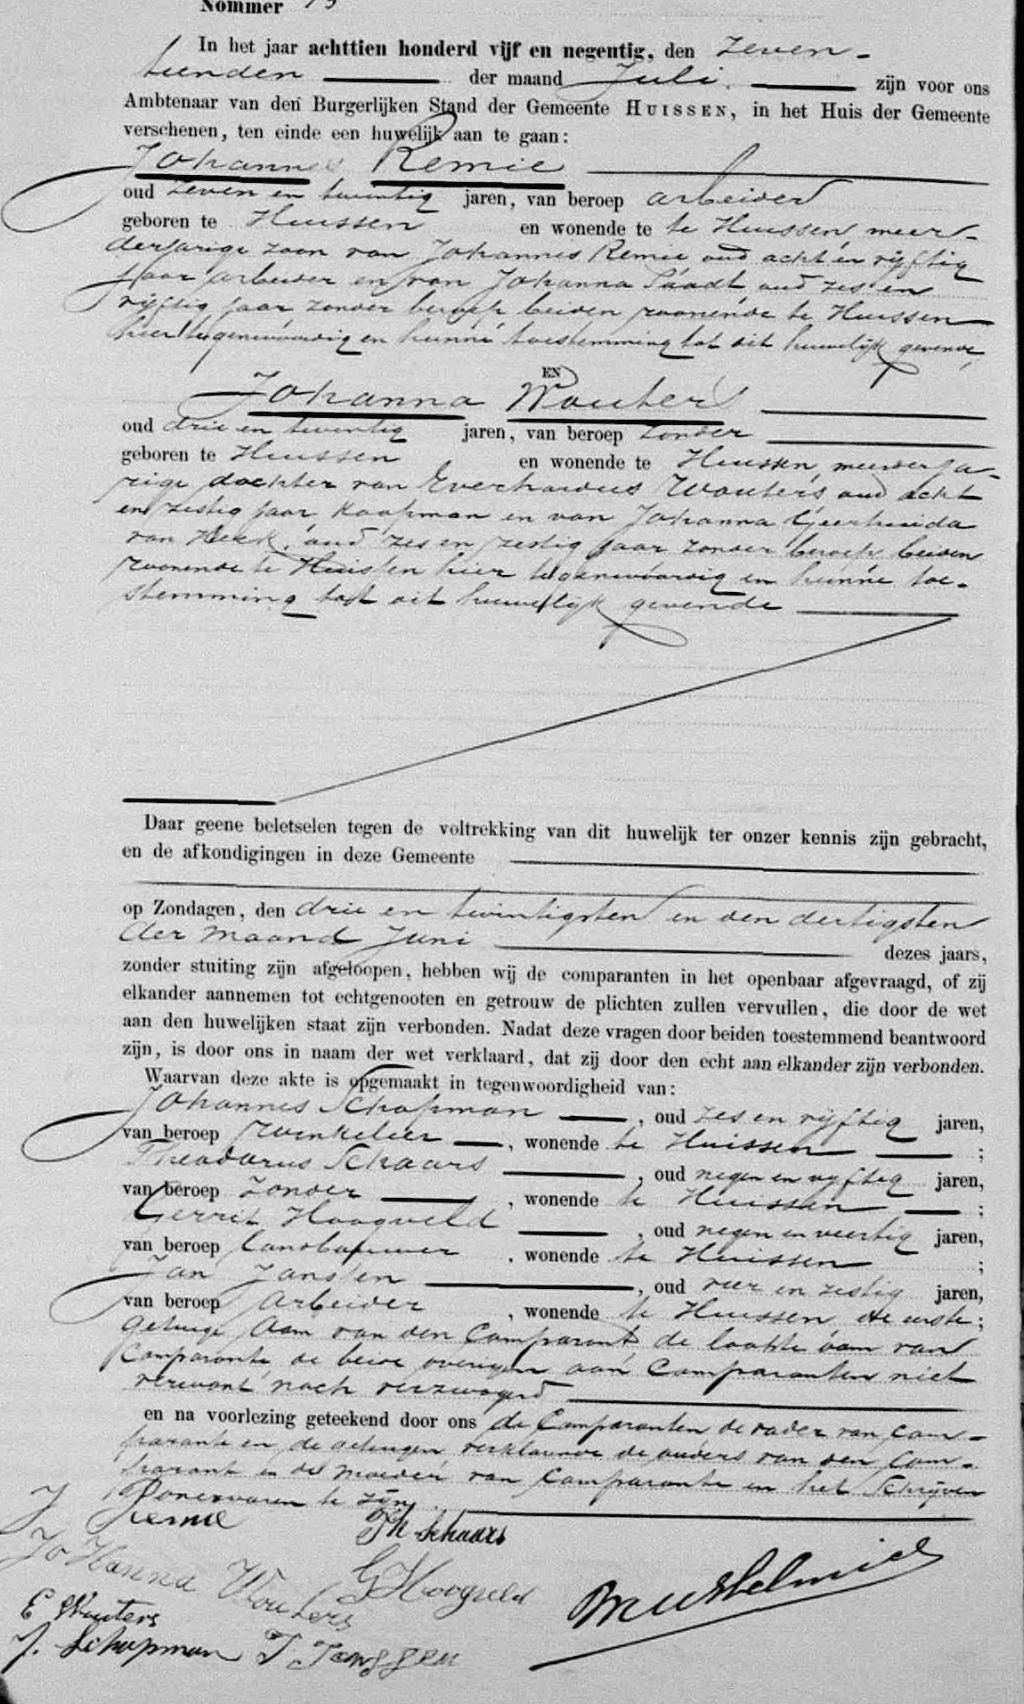 Nommer
In het jaar achttien honderd vijf en negentig, den zeven-
tienden der maand Juli. zijn voor ons
Ambtenaar van den Burgerlijken Stand der Gemeente HUISSEN, in het Huis der Gemeente
verschenen, ten einde een huwelijk aan te gaan:
Johannes Remie
oud zeven en twintig jaren, van beroep arbeider
geboren te Huissen en wonende te te Huissen, meer-
derjarige zoon van Johannes Remie oud acht en vijftig
jaar arbeider en van Johanna oud zes en
vijftig jaar zonder beroep beiden wonende te Huissen
hier tegenwoordig en hunne toestemming tot dit huwelijk gevende
EN
Johanna Wouters
oud drie en twintig jaren, van beroep zonder
geboren te Huissen en wonende te Huissen, meerderja-
rige dochter van Everhardus Wouters oud acht
en zestig jaar koopman en van Johanna Geertruida
van oud zes en zestig jaar zonder beroep beiden
wonende te Huissen hier tegenwoordig en hunne toe-
stemming tot dit huwelijk gevende
Daar geene beletselen tegen de voltrekking van dit huwelijk ter onzer kennis zijn gebracht,
en de afkondigingen in deze Gemeente
op Zondagen, den drie en twintigsten en den dertigsten
der maand Juni dezes jaars,
zonder stuiting zijn afgeloopen, hebben wij de comparanten in het openbaar afgevraagd, of zij
elkander aannemen tot echtgenooten en getrouw de plichten zullen vervullen, die door de wet
aan den huwelijken staat zijn verbonden. Nadat deze vragen door beiden toestemmend beantwoord
zijn, is door ons in naam der wet verklaard, dat zij door den echt aan elkander zijn verbonden.
Waarvan deze akte is opgemaakt in tegenwoordigheid van:
Johannes Schopman, oud zes en vijftig jaren,
van beroep winkelier, wonende te Huissen;
Theodorus Schaars, oud negen en vijftig jaren,
van beroep zonder, wonende te Huissen;
Gerrit Hoogveld, oud negen en veertig jaren,
van beroep landbouwer, wonende te Huissen;
Jan Janssen, oud vier en zestig jaren,
van beroep arbeider, wonende te Huissen, de eerste;
getuige oom van den Comparant, de laatste oom van
Comparante, de beide overigen aan Comparanten niet
verwant noch verzwagerd
en na voorlezing geteekend door ons de Comparanten de vader van Com-
parante en de getuigen verklarende de ouders van den Com-
parant en de moeder van Comparante en het Schrijven
onervaren te zijn.
J Remie
Th Schaars
Johanna Wouters
G Hoogveld
E Wouters
J. Schopman
J Janssen